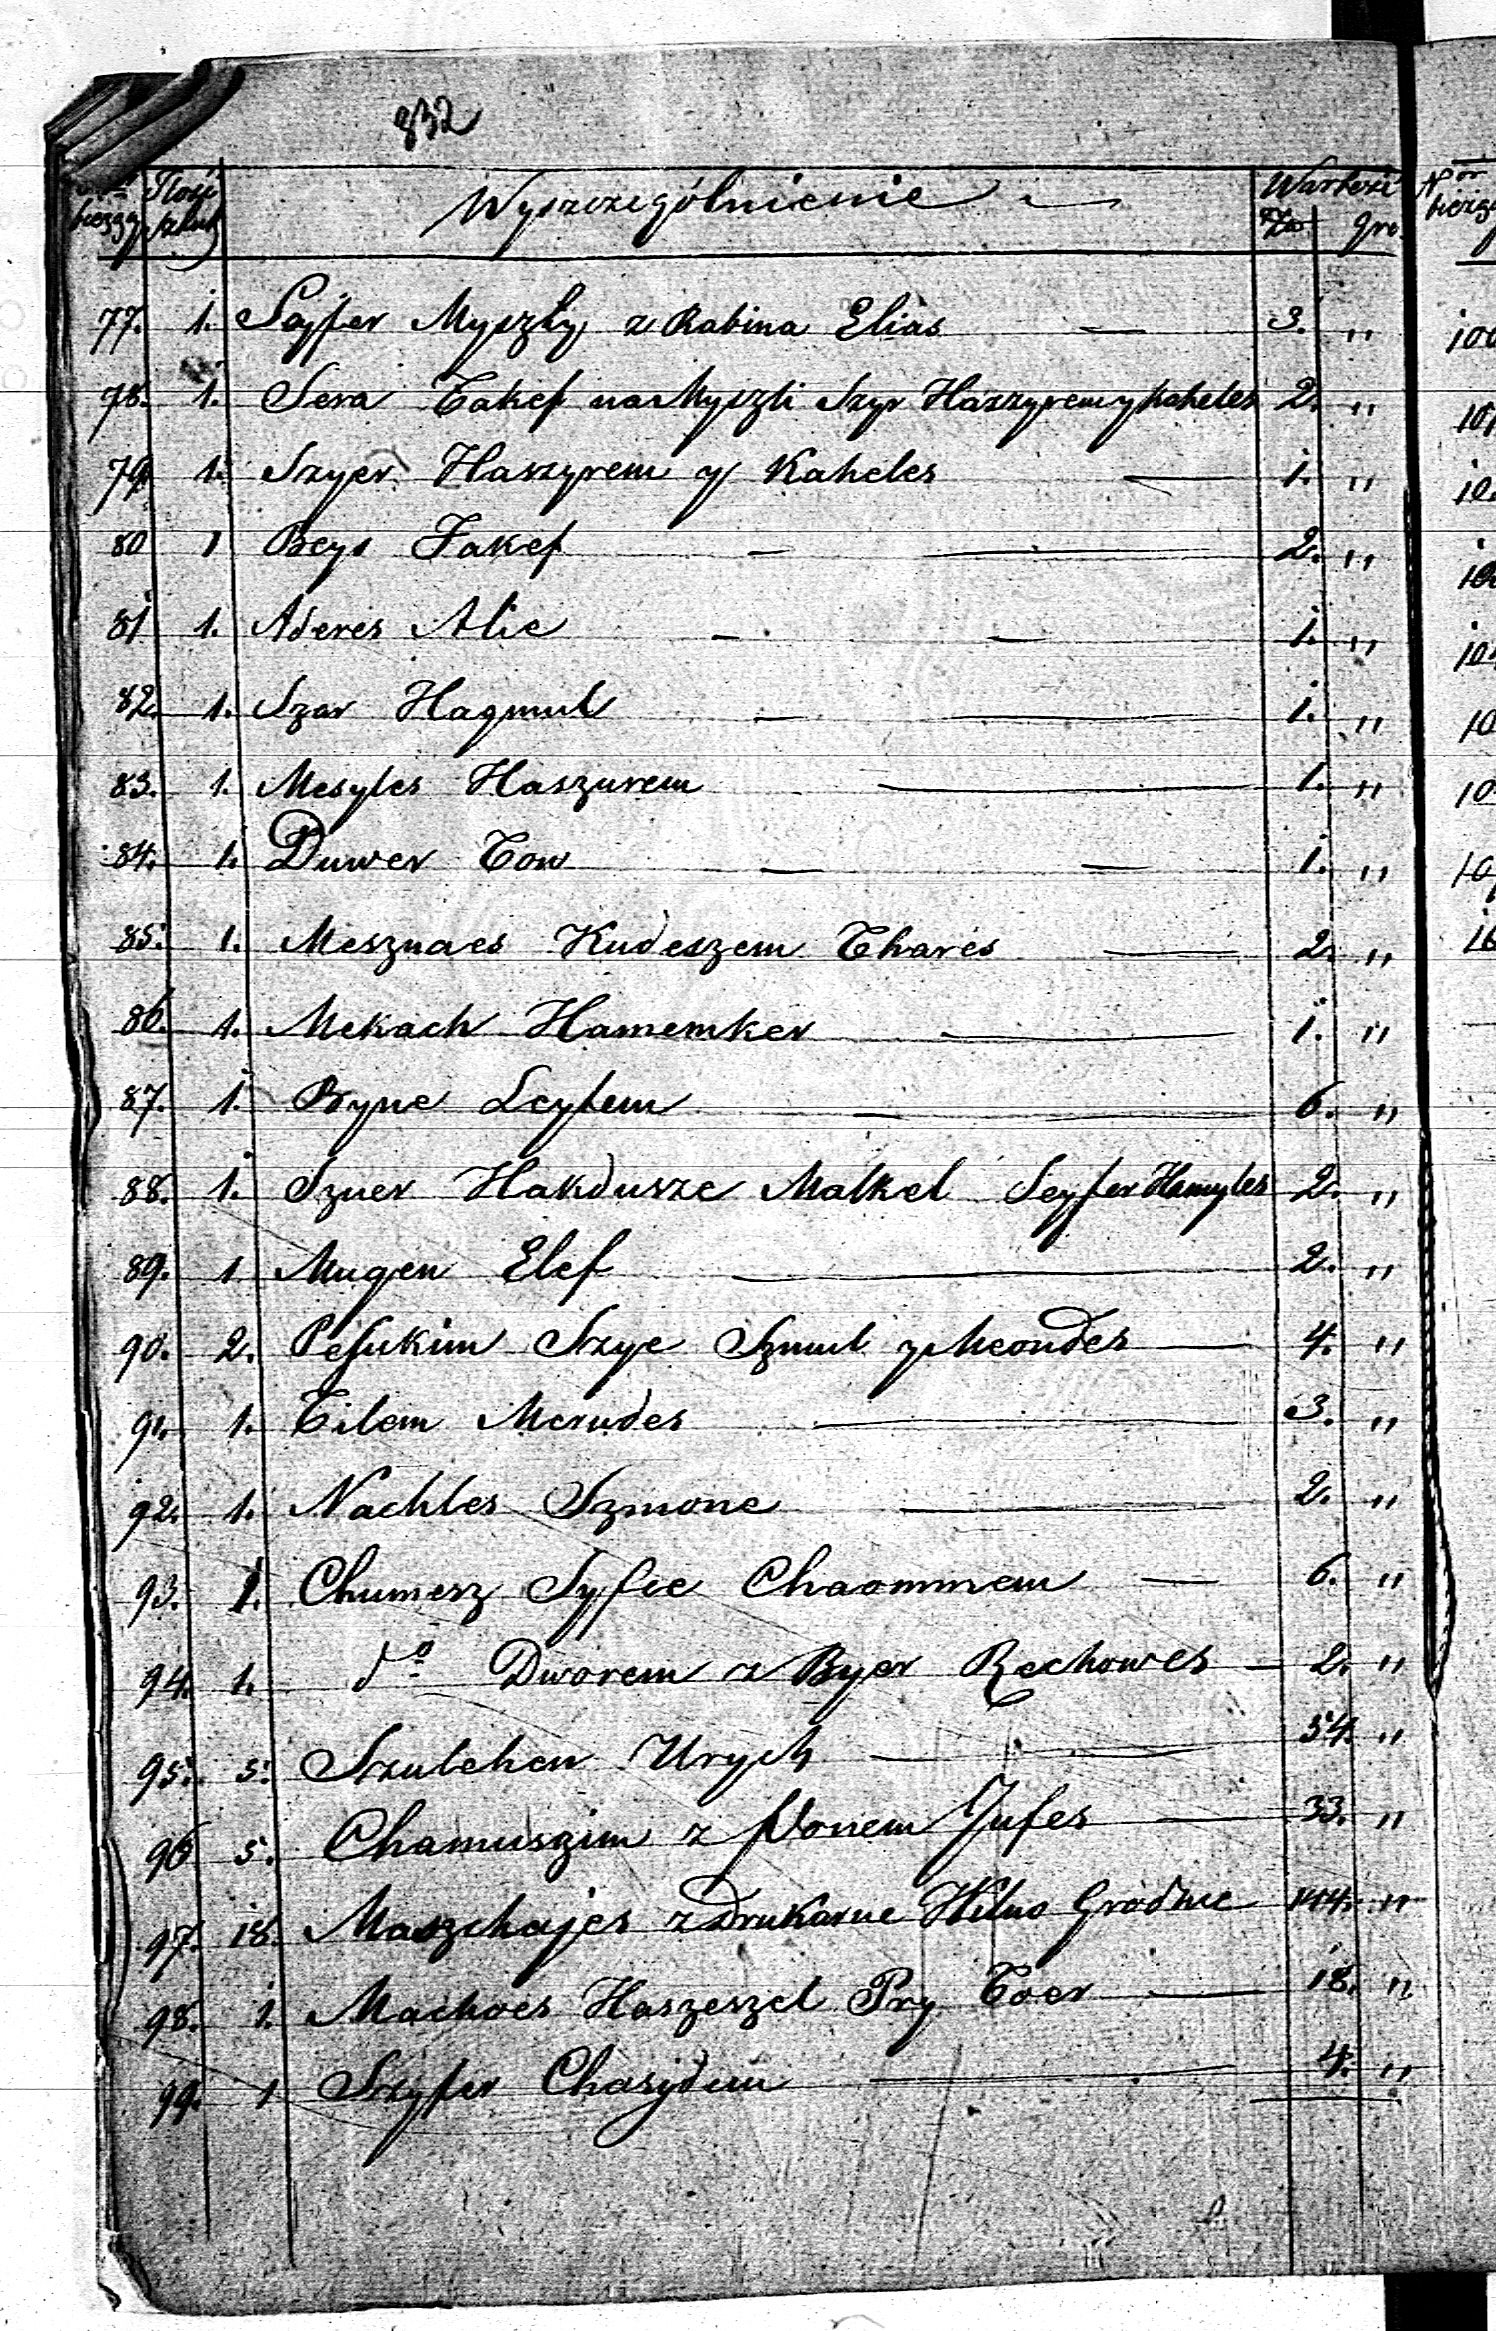 832
Nro bieżgy Ilość sztuk Wyszczególnienie Wartość
Zło gro.
77. 1. Sejfer Myszly z Rabina Elias — 3. "
78. 1. Sera Takef na Myszli Szyr Haszyrem y Koheles 2. "
79. 1. Szyer Haszyrem y Kaheles — 1. "
80 1 Beys Jakef — — 2. "
81 1. Aderes Alie — — 1. "
82. 1. Szar Hagmul — — 1. "
83. 1. Mesyles Haszurem — 1. "
84. 1. Duwer Tow — — 1. "
85. 1. Mesznaes Kudeszem Thares — 2. "
86. 1. Mekach Hamemker — 1. "
87. 1. Byne Leytem — 6. "
88. 1. Szuer Hakdusze Malkel Seyfer Hamyles 2. "
89. 1 Mugen Elef — 2. "
90. 2. Pesukim Szye Szmul y Meondes — 4. "
91. 1. Tilem Merudes — 3. "
92. 1. Nachles Szmone — 2. "
93. 1. Chumesz Syfie Chaommem — 6. "
94. 1. do Dworem z Byer Rechowes — 2. "
95. 5. Szulchen Urych — 54. "
96 5. Chamuszim z Ponem Jufes — 33. "
97. 18. Maszchajes z Drukarne Wilno Grodnie 144. "
98. 1. Machoes Haszeszel Pry Toer — 18. "
99. 1 Szyfer Chasydem — 4. "